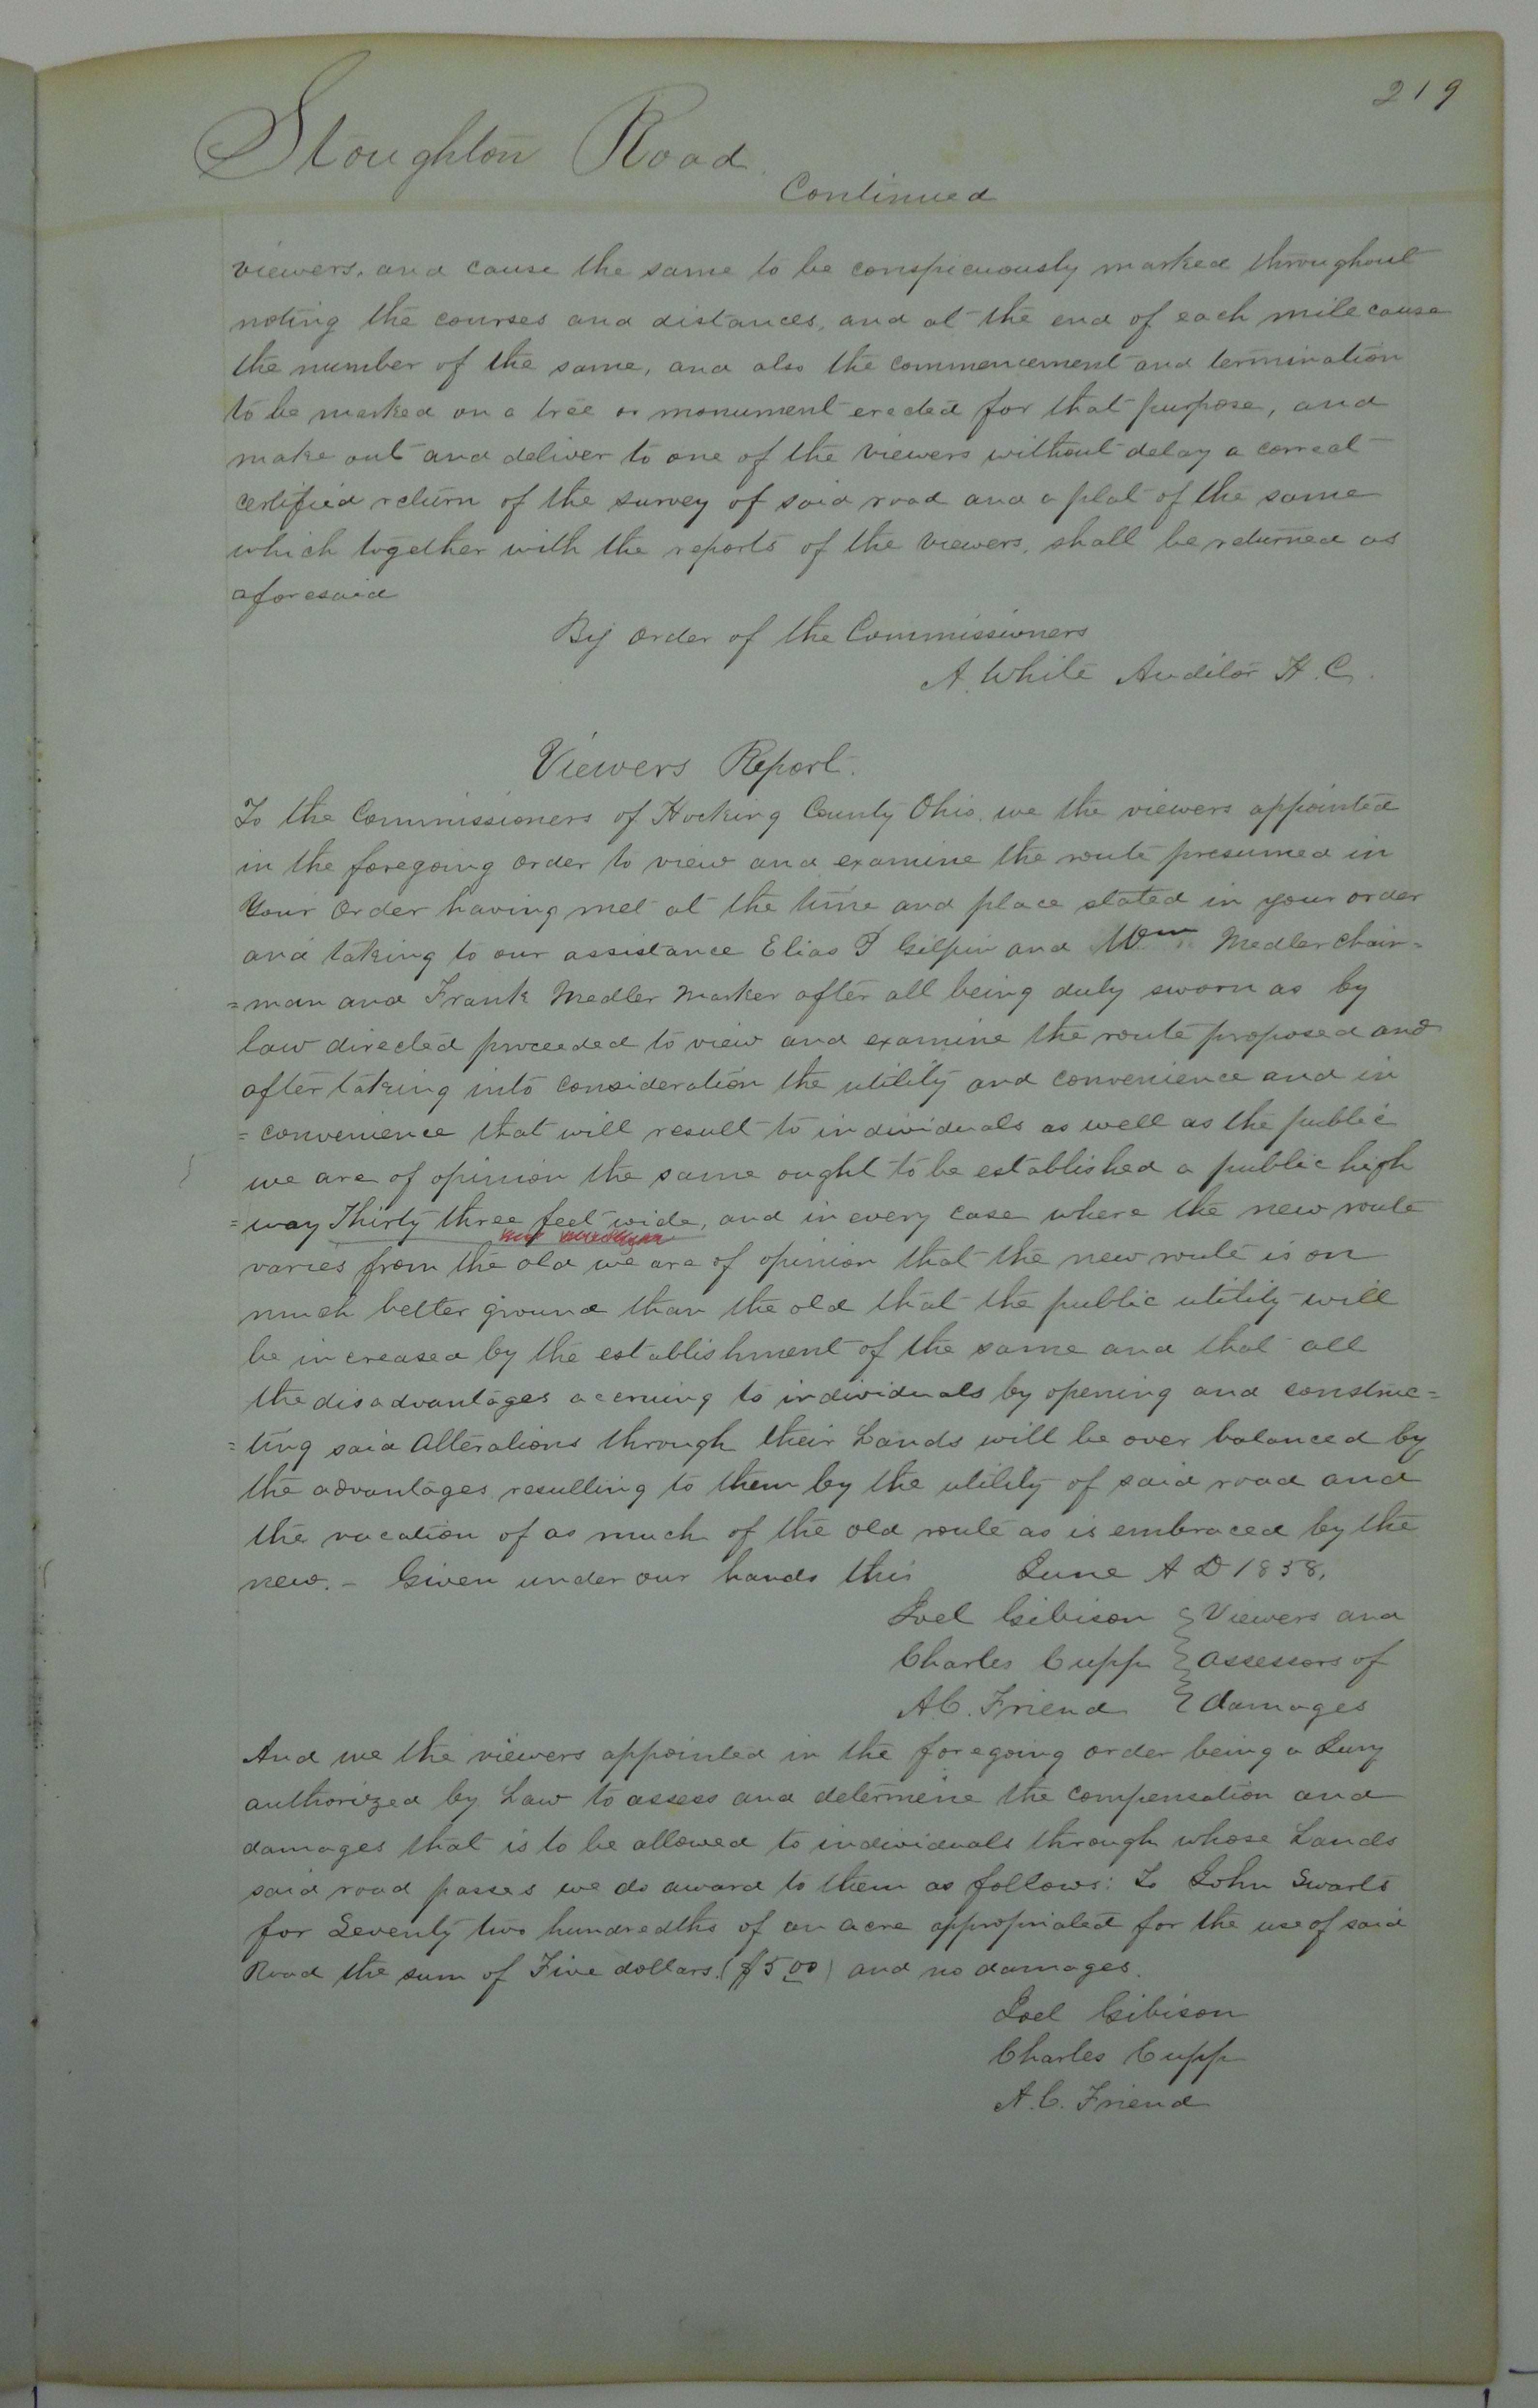 219
Stoughton Road.
Continued
viewers, and cause the same to be conspicuously marked throughout
noting the courses and distances, and at the end of each mile cause
the number of the same, and also the commencement and termination
to be marked on a tree or monument erected for that purpose, and
make out and deliver to one of the viewers without delay a correct
certified return of the survey of said road and a plat of the same
which together with the reports of the viewers, shall be returned as
aforesaid
By order of the Commissioners
A. White Auditor H. C.
Viewers Report.
To the Commissioners of Hocking County Ohio, we the viewers appointed
in the foregoing order to view and examine the route presumed in
Your order having met at the time and place stated in your order
and taking to our assistance Elias P Gilpin and Wm Medler chair=
=man and Frank Medler Marker after all being duly sworn as by
law directed proceeded to view and examine the route proposed and
after taking into consideration the utility and convenience and in
=convenience that will result to individuals as well as the public
we are of opinion the same ought to be established a public high
=way Thirty three feet wide, and in every case where the new route
varies from the old we are of opinion that the new route is on
much better ground than the old that the public utility will
be increased by the establishment of the same and that all
the disadvantages accruing to individuals by opening and construc=
=ting said Alterations through their Lands will be over balanced by
the advantages resulting to them by the utility of said road and
the vacation of as much of the old route as is embraced by the
new. - Given under our hands this June A D 1858.
Joel Gibison } Viewers and
Charles Cupp } assessors of
A.C. Friend } damages
And we the viewers appointed in the foregoing order being a Jury
authorized by Law to assess and determine the compensation and
damages that is to be allowed to individuals through whose Lands
said road passes we do award to them as follows: To John Swarts
for Seventy two hundredths of an acre appropriated for the use of said
Road the sum of Five dollars. ($5.00) and no damages.
Joel Gibison
Charles Cupp
A. C. Friend